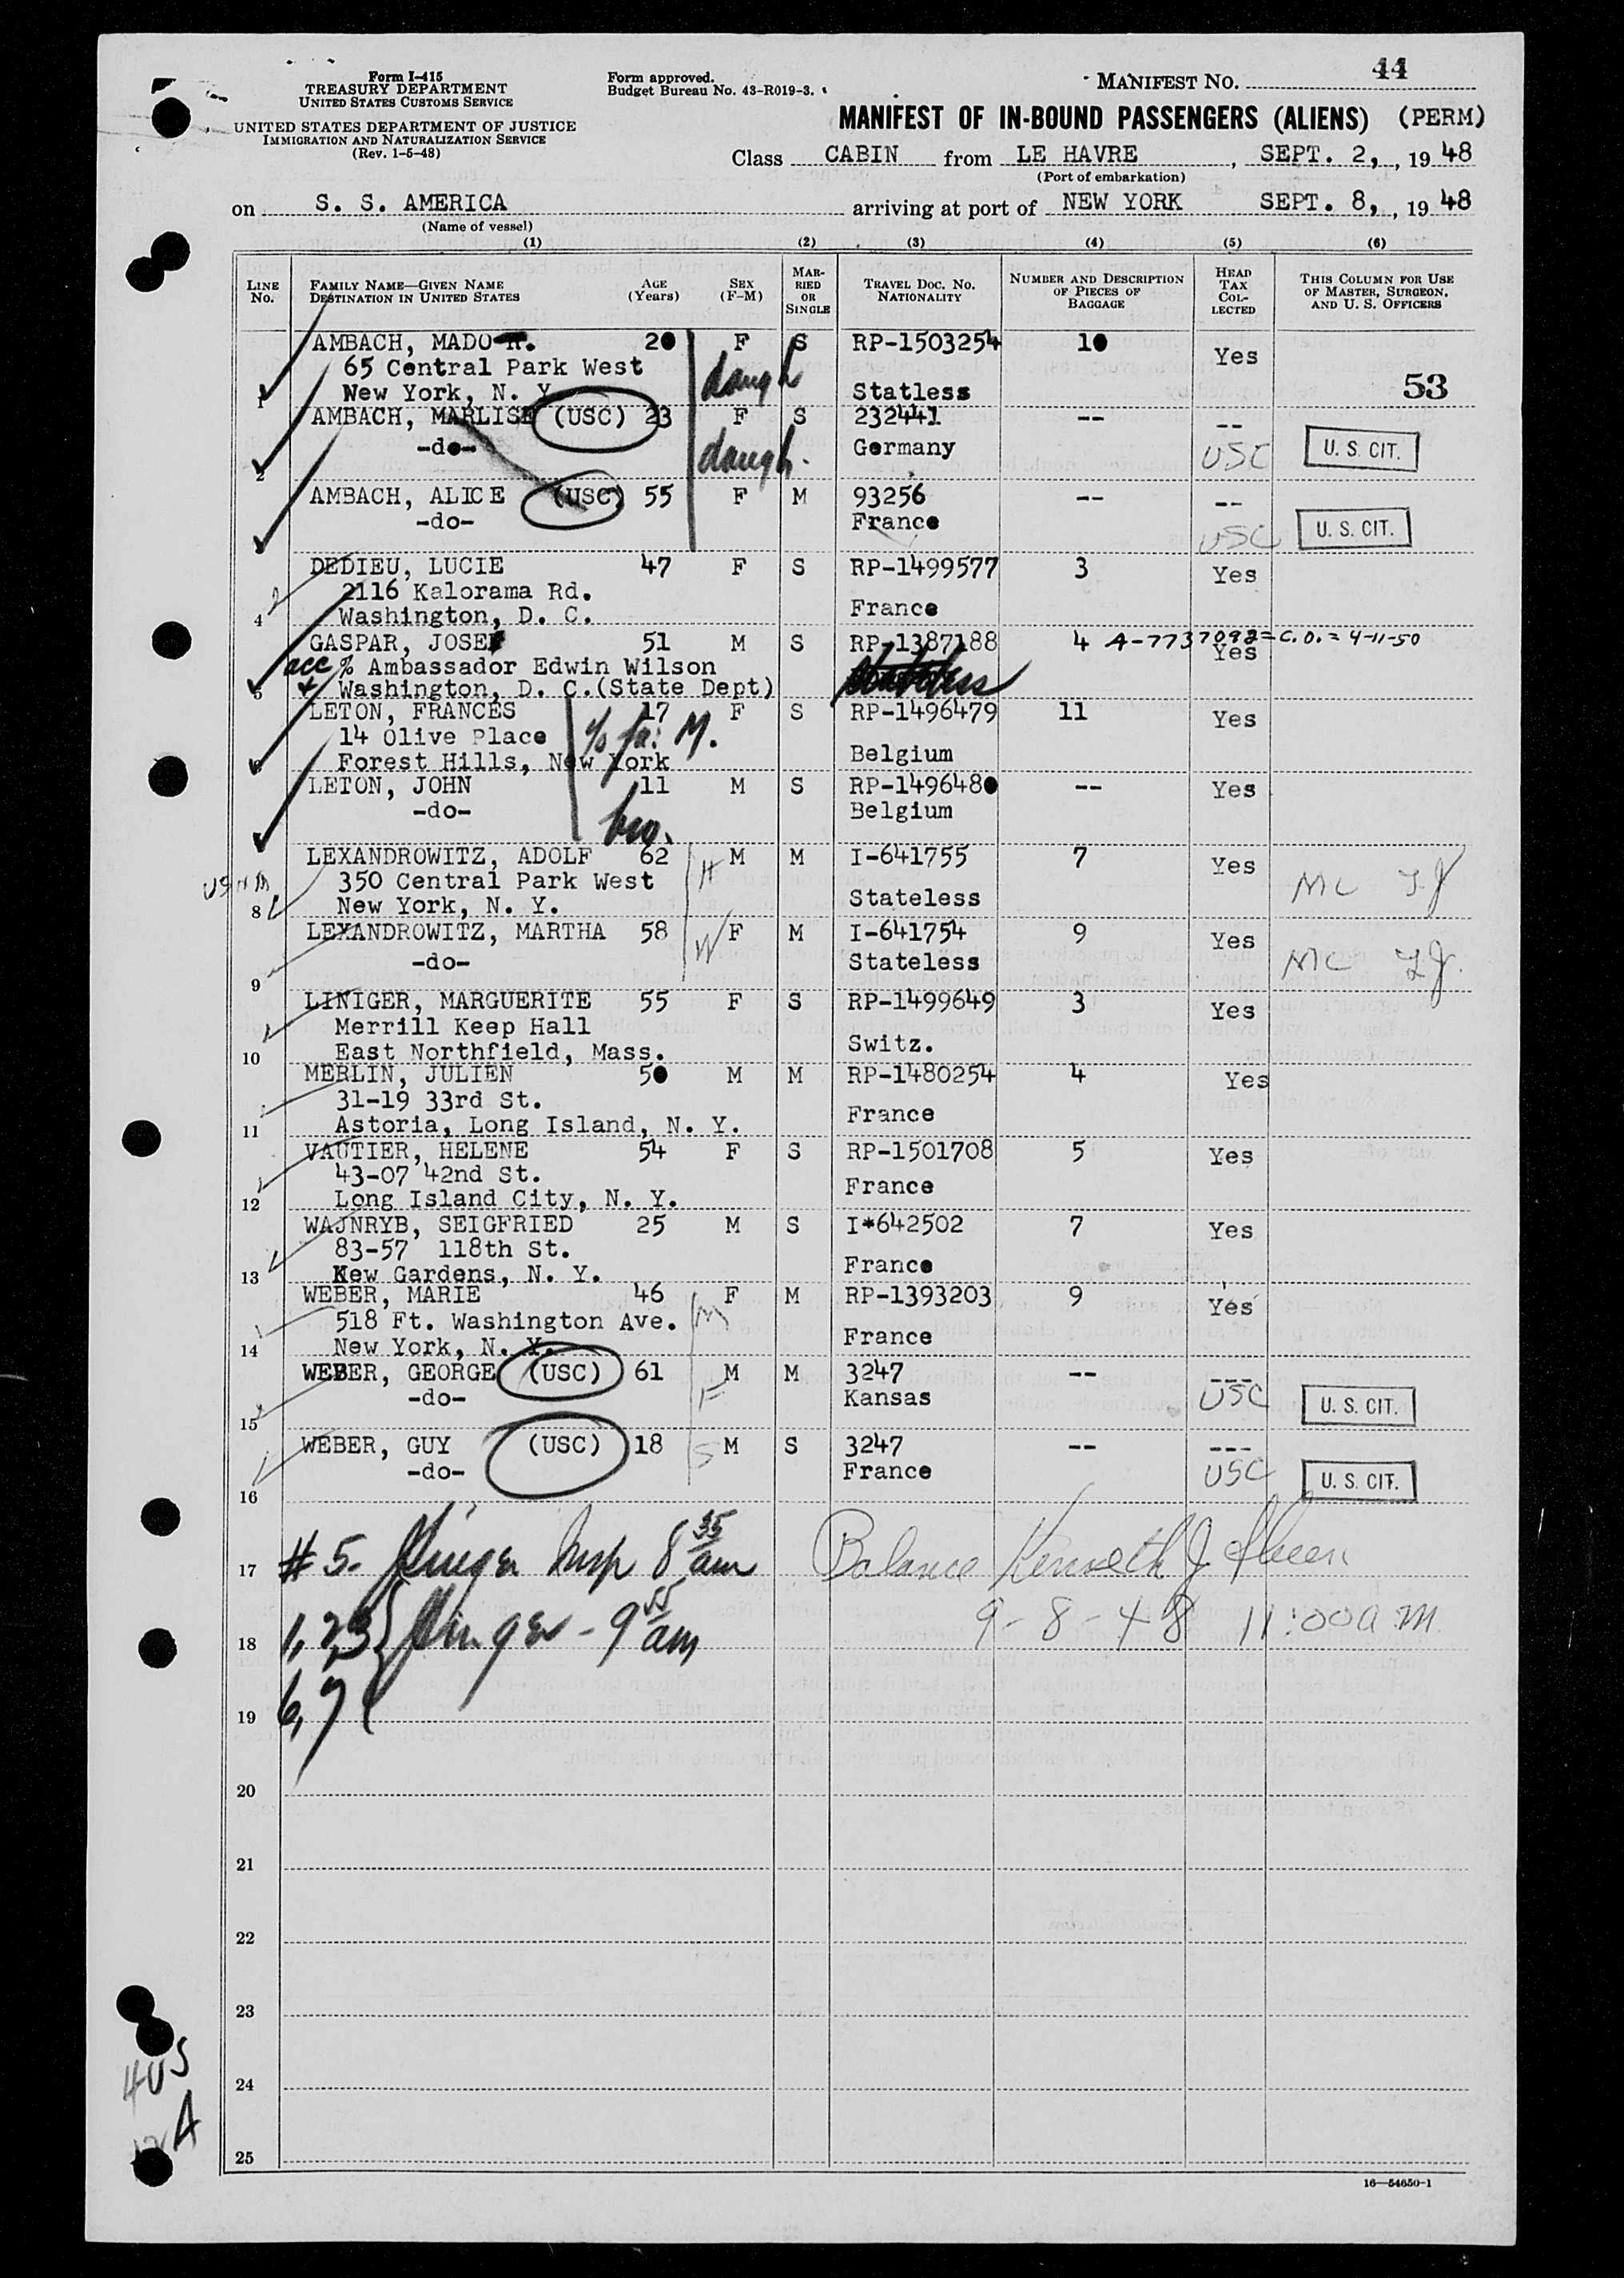 Form I-415
TREASURY DEPARTMENT
UNITED STATES CUSTOMS SERVICE
UNITED STATES DEPARTMENT OF JUSTICE
IMMIGRATION AND NATURALIZATION SERVICE
(Rev. 1-5-48)
Form approved.
Budget Bureau No. 43-R019-3.
MANIFEST NO. 44
MANIFEST OF IN-BOUND PASSENGERS (ALIENS) (PERM)
Class CABIN from LE HAVRE, SEPT. 2,, 19 48
(Port of embarkation)
on S. S. AMERICA arriving at port of NEW YORK SEPT. 8,, 19 48
(Name of vessel)
(1) (2) (3) (4) (5) (6)
LINE No. FAMILY NAME—GIVEN NAME DESTINATION IN UNITED STATES AGE (Years) SEX (F-M) MARRIED OR SINGLE TRAVEL DOC. NO. NATIONALITY NUMBER AND DESCRIPTION OF PIECES OF BAGGAGE HEAD TAX COLLECTED THIS COLUMN FOR USE OF MASTER, SURGEON, AND U. S. OFFICERS
AMBACH, MADO 20 F S RP-1503254 10 Yes
65 Central Park West daugh
1 New York, N. Y. Statless 53
AMBACH, MARLISE (USC) 23 F S 232441 -- --
-do- daugh. Germany USC U. S. CIT.
2
AMBACH, ALICE (USC) 55 F M 93256 -- --
-do- France USC U. S. CIT.
3
DEDIEU, LUCIE 47 F S RP-1499577 3 Yes
2116 Kalorama Rd.
4 Washington, D. C. France
GASPAR, JOSEF 51 M S RP-1387188 4 A-7737092=C.O.=4-11-50 Yes
acc % Ambassador Edwin Wilson
5 Washington, D. C.(State Dept)
LETON, FRANCES 17 F S RP-1496479 11 Yes
14 Olive Place
6 Forest Hills, New York Belgium
LETON, JOHN 11 M S RP-1496480 -- Yes
-do- bro. Belgium
LEXANDROWITZ, ADOLF 62 H M M I-641755 7 Yes
350 Central Park West Stateless MC
8 New York, N. Y.
LEXANDROWITZ, MARTHA 58 W F M I-641754 9 Yes
-do- Stateless MC
9
LINIGER, MARGUERITE 55 F S RP-1499649 3 Yes
Merrill Keep Hall
10 East Northfield, Mass. Switz.
MERLIN, JULIEN 50 M M RP-1480254 4 Yes
31-19 33rd St. France
11 Astoria, Long Island, N. Y.
VAUTIER, HELENE 54 F S RP-1501708 5 Yes
43-07 42nd St. France
12 Long Island City, N. Y.
WAJNRYB, SEIGFRIED 25 M S I*642502 7 Yes
83-57 118th St.
13 Kew Gardens, N. Y. France
WEBER, MARIE 46 M F M RP-1393203 9 Yes
518 Ft. Washington Ave. France
14 New York, N. Y.
WEBER, GEORGE (USC) 61 F M M 3247 -- ---
-do- Kansas USC U. S. CIT.
15
WEBER, GUY (USC) 18 S M S 3247 -- ---
-do- France USC U. S. CIT.
16
17 #5. Insp 8 35 am Balance Kenneth J
18 1, 2, 3 - 9 55 am 9-8-48 11:00 a.m.
19 6, 7
20
21
22
23
24
25
4 US
A
16—54650-1